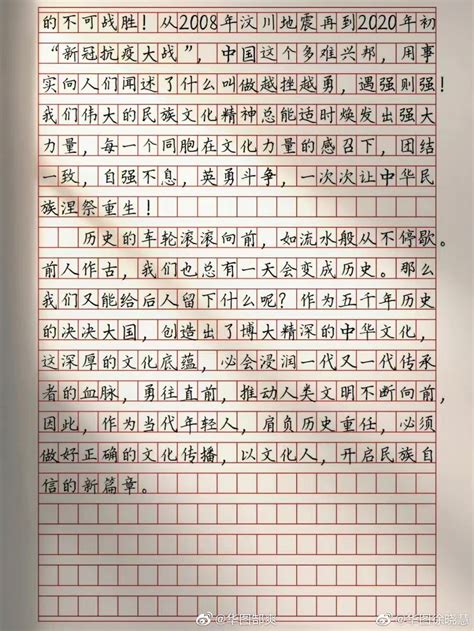 的不可战胜！从2008年汶川地震再到2020年初
“新冠抗疫大战”，中国这个多难兴邦，用事
实向人们闻述了什么叫做越挫越勇，遇强则强！
我们伟大的民族文化精神总能适时焕发出强大
力量，每一个同胞在文化力量的感召下，团结
一致，自强不息，英勇斗争，一次次让中华民
族涅祭重生！
历史的车轮滚滚向前，如流水般从不停歇。
前人作古，我们也总有一天会变成历史。那么
我们又能给后人留下什么呢？作为五千年历史
的决决大国，创造出了博大精深的中华文化，
这深厚的文化底蕴，必会浸润一代又一代传承
者的血脉，勇往直前，推动人类文明不断向前，
因此，作为当代年轻人，肩负历史重任，必须
做好正确的文化传播，以文化人，开启民族自
信的新篇章。
@华图徐晓慧